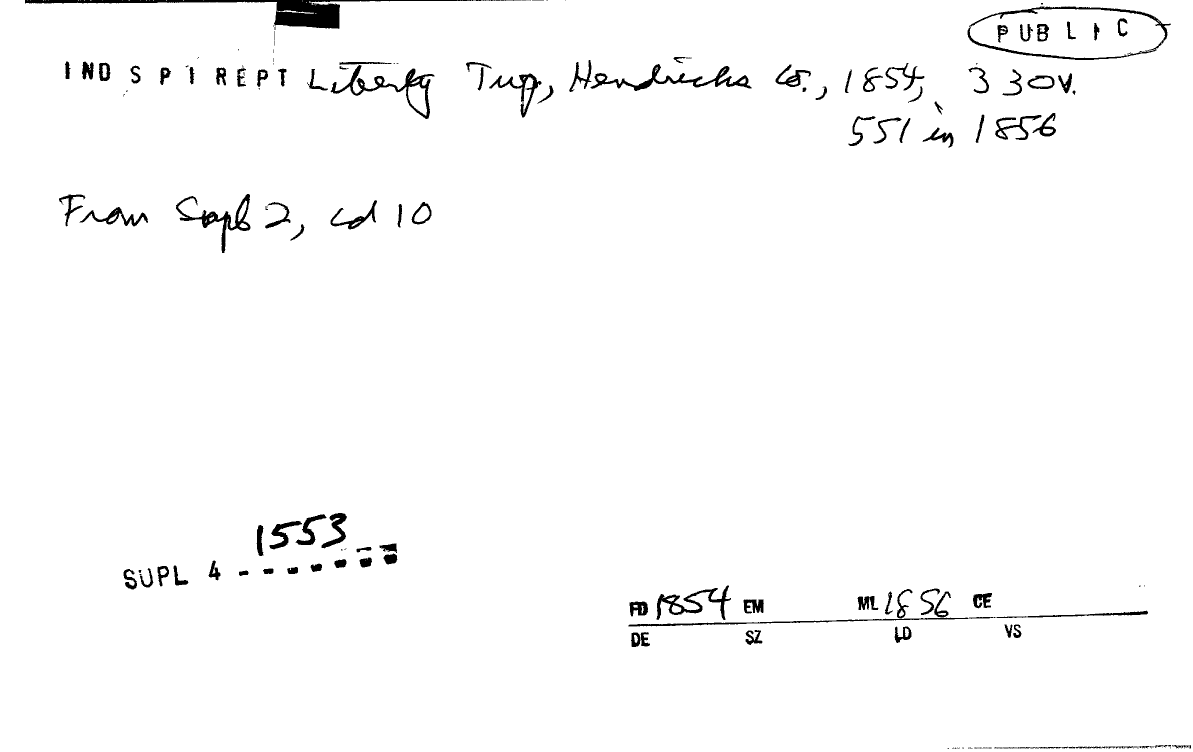 PUBLIC
IND SPI REPT Liberty Twp, Hendricks Co., 1854, 330v.
551 in 1856
From Supl 2, cd 10
1553
SUPL 4 -------
FD 1854 EM ML 1856 CE
DE SZ LD VS